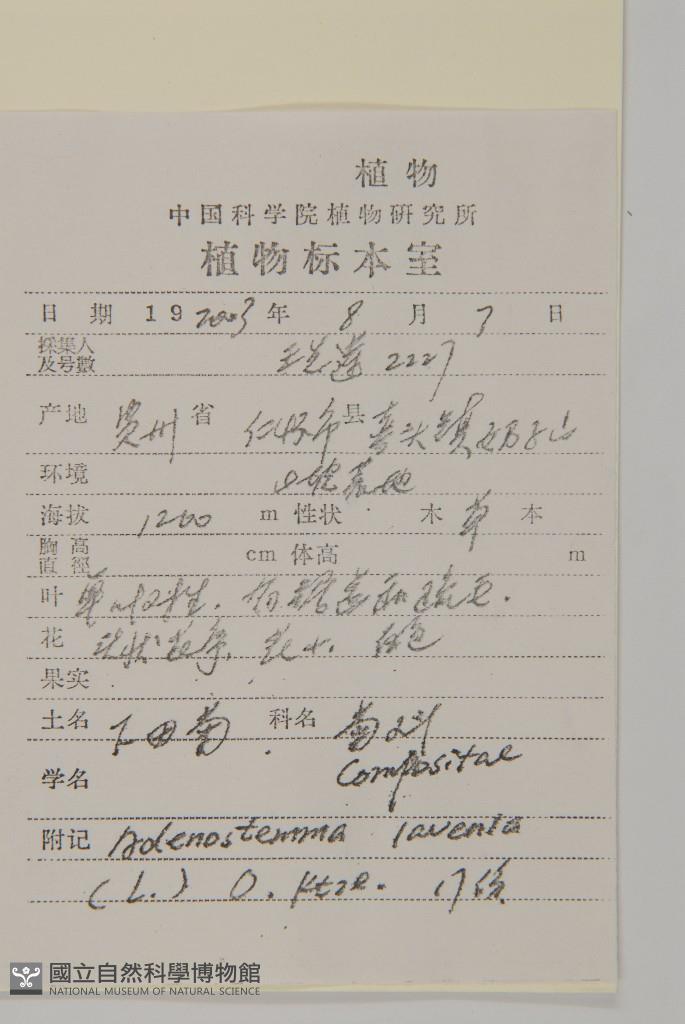 植物
中国科学院植物研究所
植物标本室
日期 19 2003年 8月 7日
採集人
及号數 2227
产地 贵州省 仁怀市县
环境
海拔 1200 m 性状 木 草本
胸高
直徑 cm 体高 m
叶 单叶对生.
花 头状花序. 花小. 白色
果实
土名 下田菊 科名 菊科
学名 Compositae
附记 Adenostemma lavenia
(L.) O. Ktze.
國立自然科學博物館
NATIONAL MUSEUM OF NATURAL SCIENCE